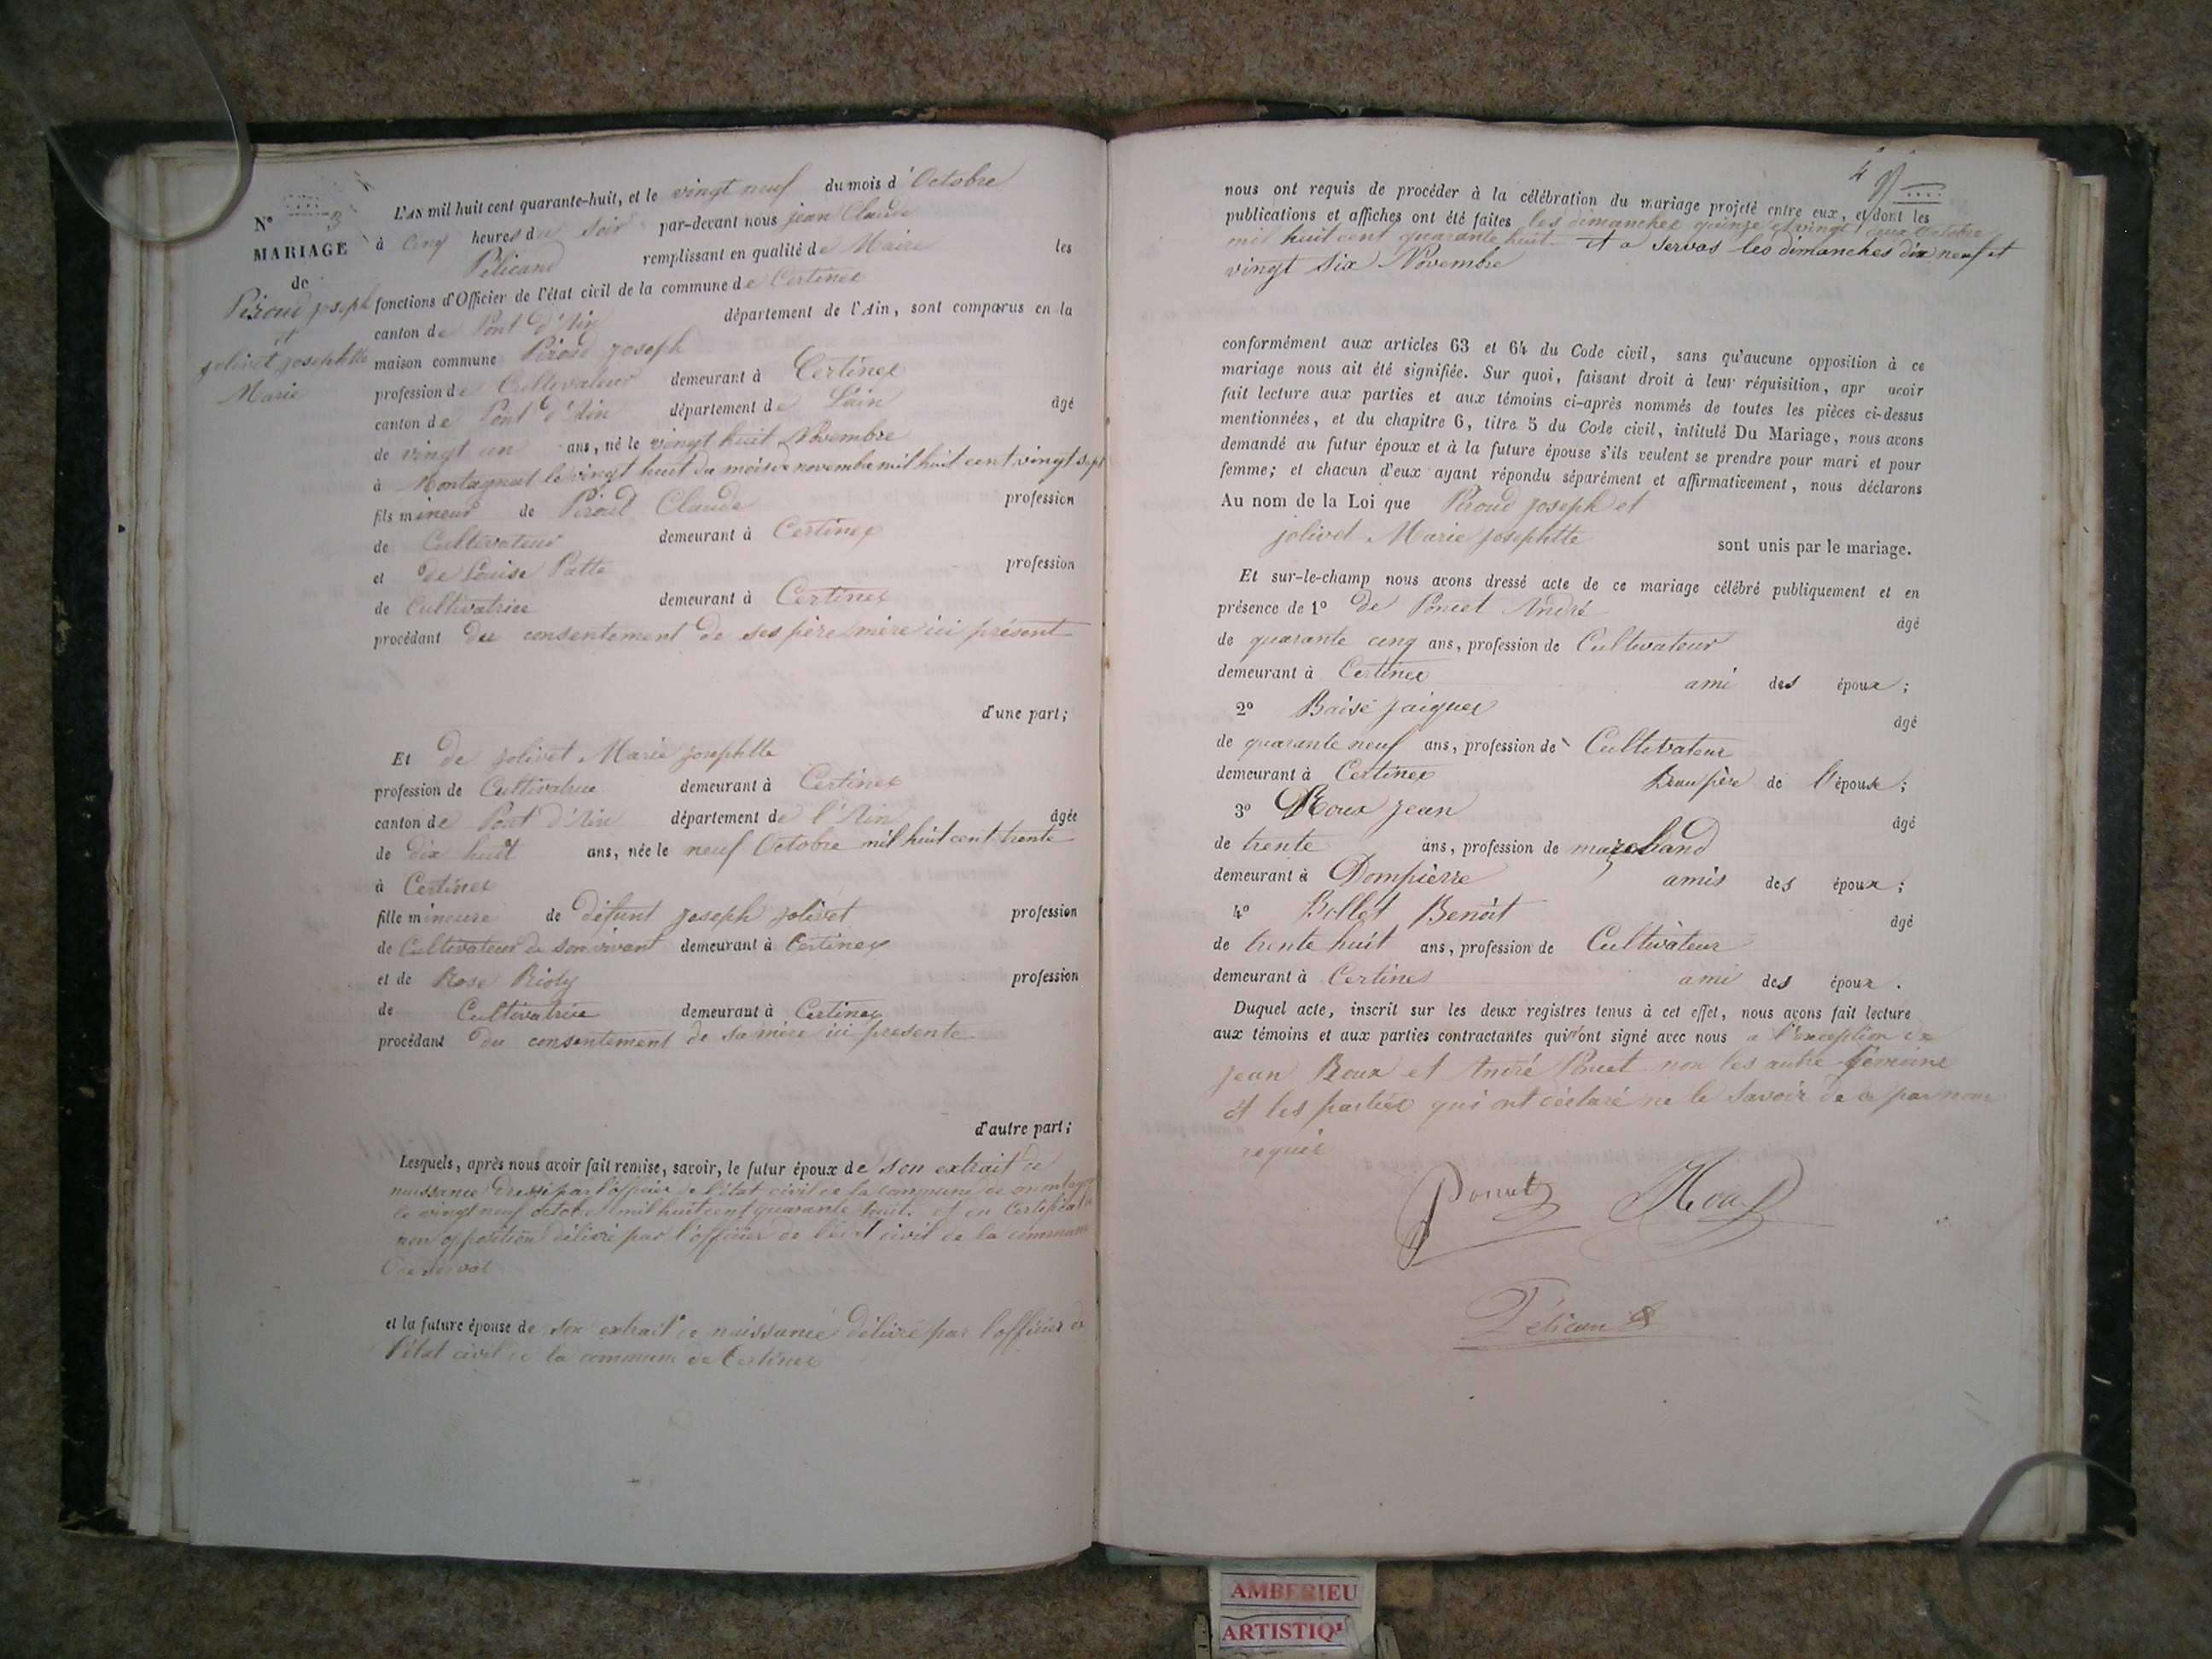 N° 3
MARIAGE
de
Péroud joseph
et
jolivet josephtte
Marie
L'AN mil huit cent quarante-huit, et le vingt neuf du mois d'Octobre
à cinq heures du soir par-devant nous jean Claude
Pélicand remplissant en qualité de Maire les
fonctions d'Officier de l'état civil de la commune de Certines
canton de Pont d'Ain département de l'Ain, sont comparus en la
maison commune Péroud joseph
profession de Cultivateur demeurant à Certines
canton de Pont d'Ain département de L'ain âgé
de vingt un ans, né le vingt huit Novembre
à Montagnat le vingt huit du mois de novembre mil huit cent vingt sept
fils mineur de Péroud Claude profession
de Cultivateur demeurant à Certines
et de Louise Patte profession
de Cultivatrice demeurant à Certines
procédant du consentement de ses père mère ici présent
d'une part;
Et de jolivet Marie josephtte
profession de Cultivatrice demeurant à Certines
canton de Pont d'Ain département de l'Ain âgée
de dix huit ans, née le neuf Octobre mil huit cent trente
à Certines
fille mineure de défunt joseph jolivet profession
de Cultivateur de son vivant demeurant à Certines
et de Rose Rioly profession
de Cultivatrice demeurant à Certines
procédant du consentement de sa mère ici presente
d'autre part;
Lesquels, après nous avoir fait remise, savoir, le futur époux de son extrait de
naissance dressé par l'officier de l'état civil de la commune de
le vingt neuf octobre mil huit cent quarante huit. et un Certificat de
non opposition délivré par l'officier de l'état civil de la commune
de
et la future épouse de son extrait de naissance délivré par l'officier de
l'état civil de la commune de Certines
4
nous ont requis de procéder à la célébration du mariage projeté entre eux, et dont les
publications et affiches ont été faites les dimanches quinze et vingt deux Octobre
mil huit cent quarante huit. et a Servas les dimanches dix neuf et
vingt Six Novembre
conformément aux articles 63 et 64 du Code civil, sans qu'aucune opposition à ce
mariage nous ait été signifiée. Sur quoi, faisant droit à leur réquisition, apr avoir
fait lecture aux parties et aux témoins ci-après nommés de toutes les pièces ci-dessus
mentionnées, et du chapitre 6, titre 5 du Code civil, intitulé Du Mariage, nous avons
demandé au futur époux et à la future épouse s'ils veulent se prendre pour mari et pour
femme; et chacun d'eux ayant répondu séparément et affirmativement, nous déclarons
Au nom de la Loi que Péroud joseph et
jolivet Marie josephtte sont unis par le mariage.
Et sur-le-champ nous avons dressé acte de ce mariage célébré publiquement et en
présence de 1° de Poncet André âgé
de quarante cinq ans, profession de Cultivateur
demeurant à Certines ami des époux;
2° Baisé jaiques âgé
de quarante neuf ans, profession de Cultivateur
demeurant à Certines Beau père de l'épouse;
3° Roux jean âgé
de trente ans, profession de marchand
demeurant à Dompierre amis des époux;
4° Bollet Benoit âgé
de trente huit ans, profession de Cultivateur
demeurant à Certines ami des époux.
Duquel acte, inscrit sur les deux registres tenus à cet effet, nous avons fait lecture
aux témoins et aux parties contractantes qui n'ont signé avec nous a l'exception de
jean Roux et André Poncet non les autre témoins
et les parties qui ont déclaré ne le savoir de ce par nous
requis
Poncet Roux
Pélicand
AMBERIEU
ARTISTIQ